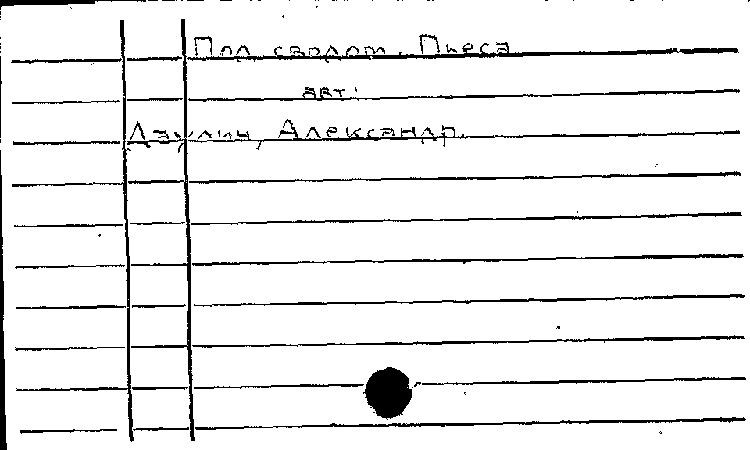 Под сводом. Пьеса
авт:
Даулин, Александр.